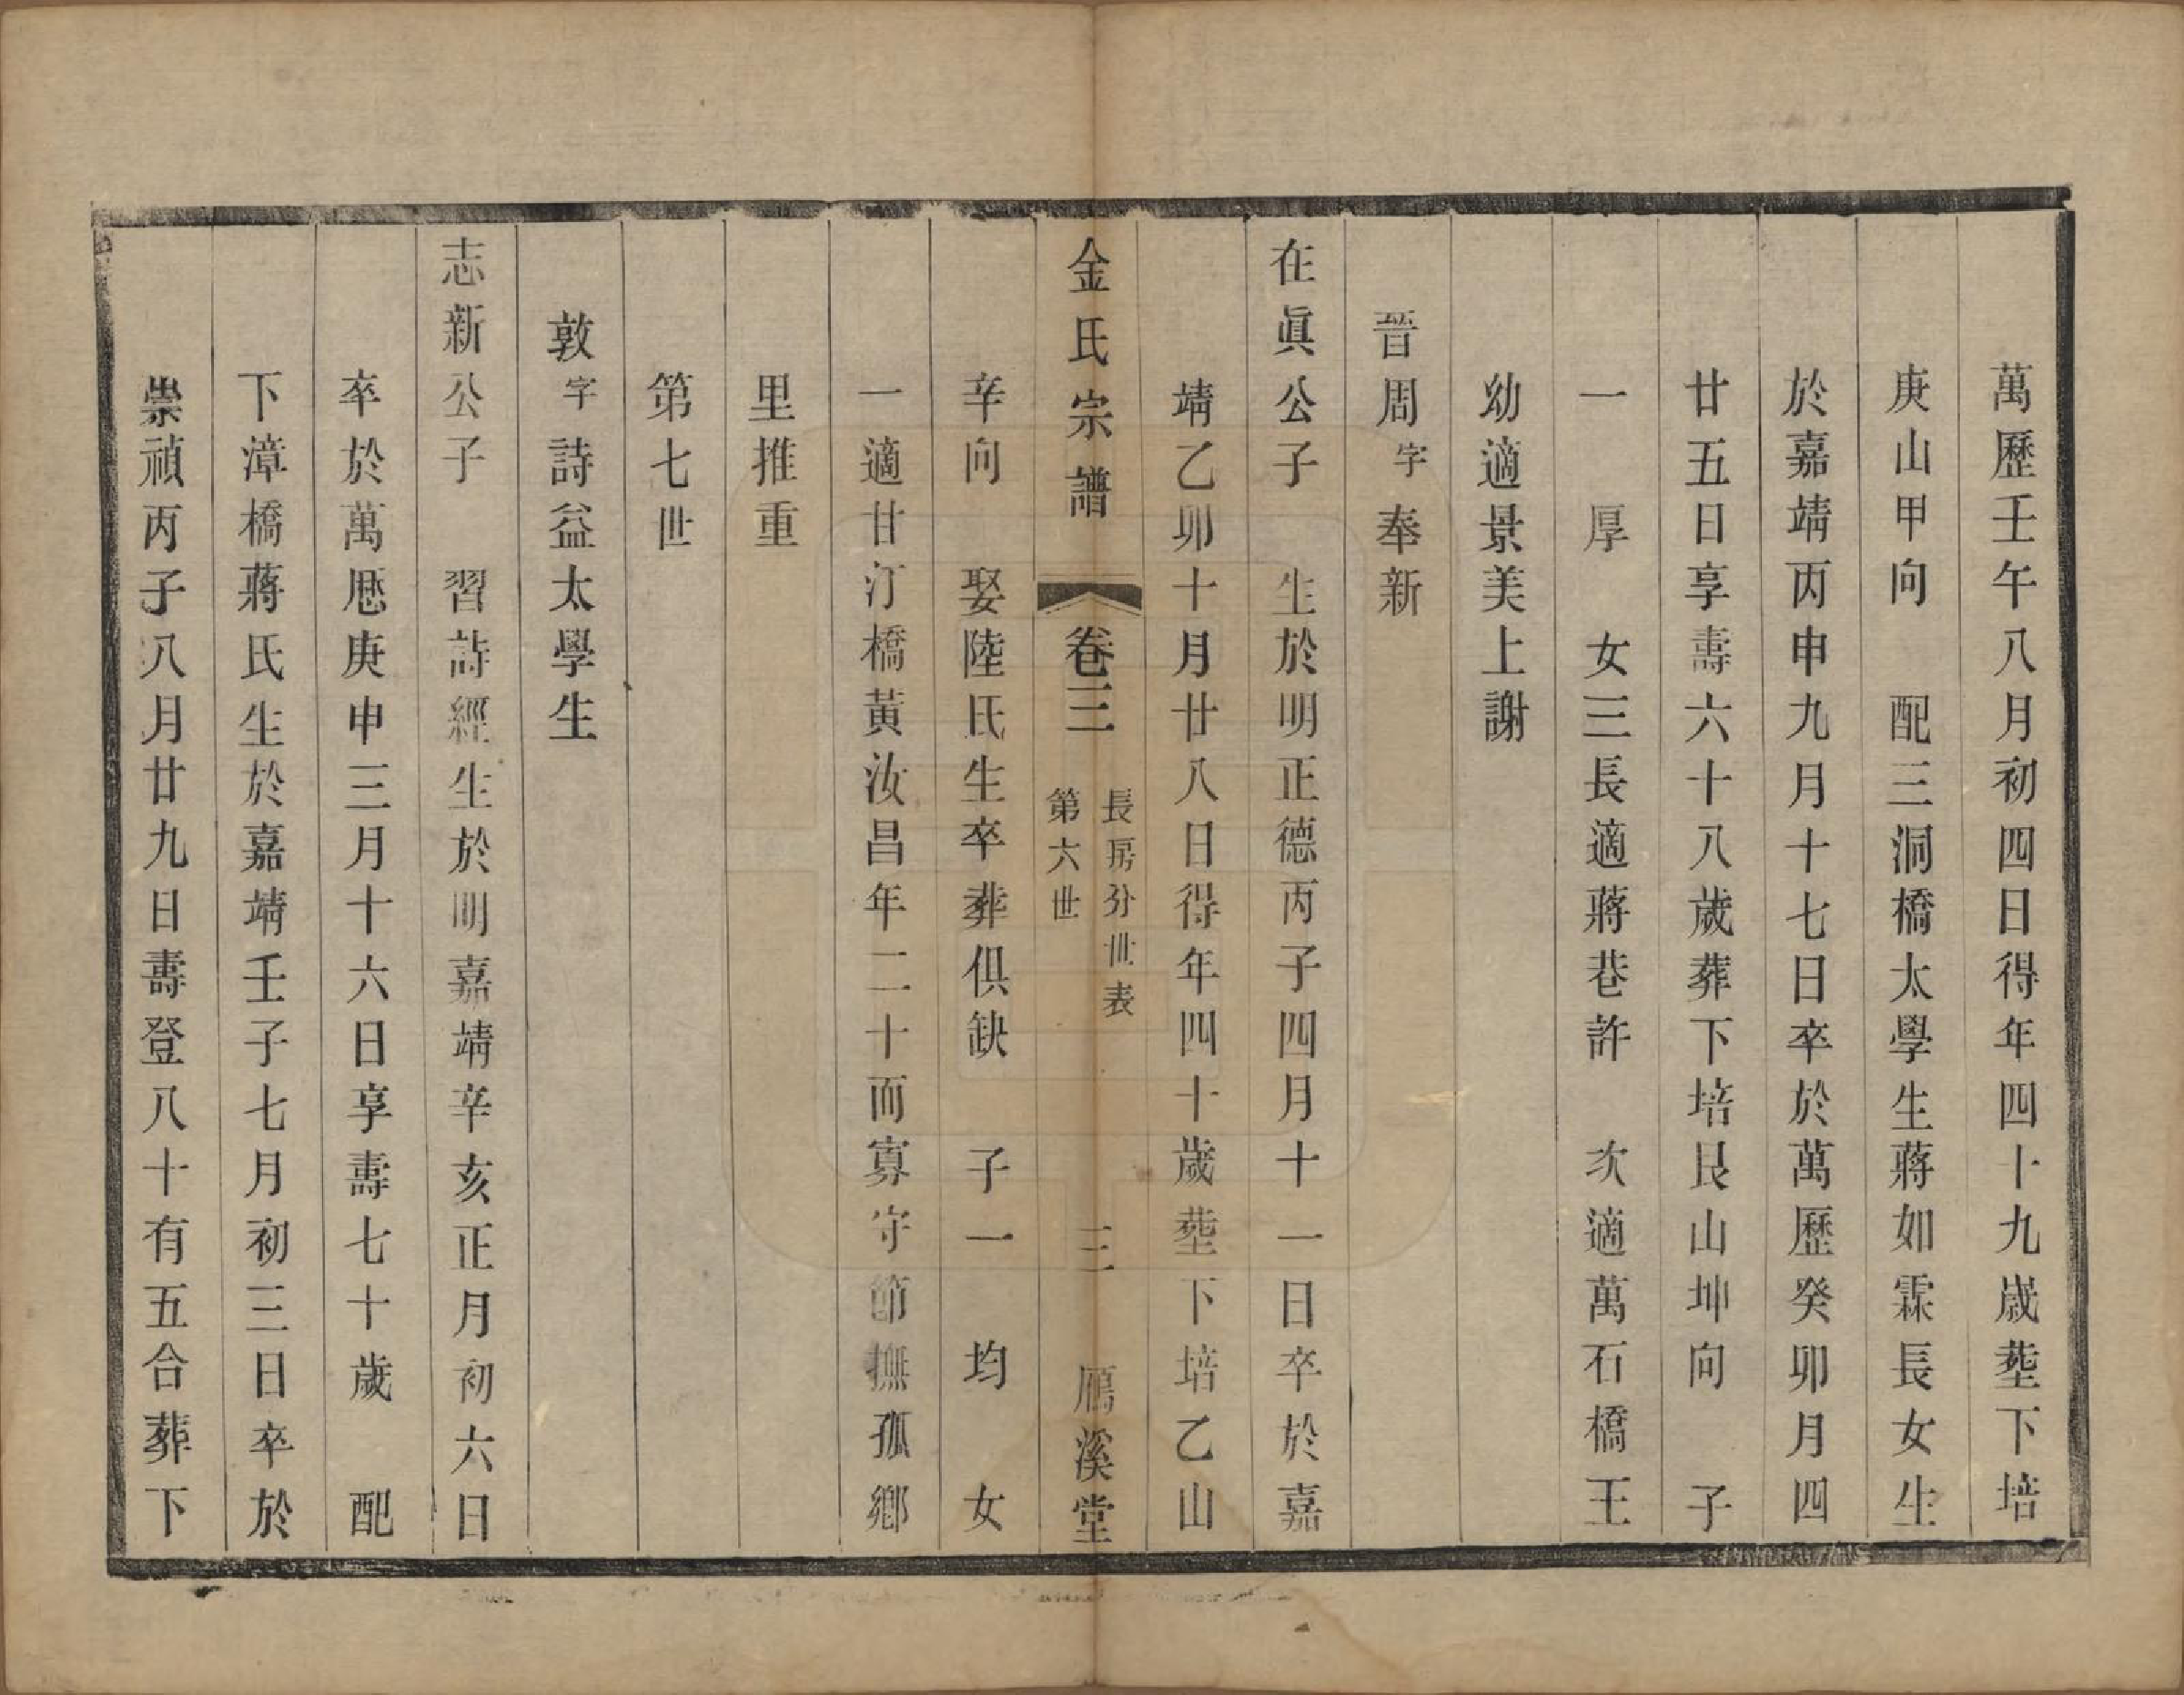 萬歷壬午八月初四日得年四十九歲塟下培
庚山甲向　配三洞橋太學生蔣如霖長女生
於嘉靖丙申九月十七日卒於萬歷癸卯月四
廿五日享壽六十八歲葬下培艮山坤向　子
一　厚　女三長適蔣巷許　次適萬石橋王
幼適景美上謝
晉周字奉新
在眞公子　生於明正德丙子四月十一日卒於嘉
靖乙卯十月廿八日得年四十歲塟下培乙山
金氏宗譜　卷三　長房分世表　第六世　三　鴈溪堂
辛向　娶陸氏生卒葬俱缺　子一　均　女
一適甘汀橋黃汝昌年二十而寡守節撫孤鄉
里推重
第七世
敦字詩益太學生
志新公子　習詩經生於明嘉靖辛亥正月初六日
卒於萬厯庚申三月十六日享壽七十歲　配
下漳橋蔣氏生於嘉靖壬子七月初三日卒於
崇禎丙子八月廿九日壽登八十有五合葬下